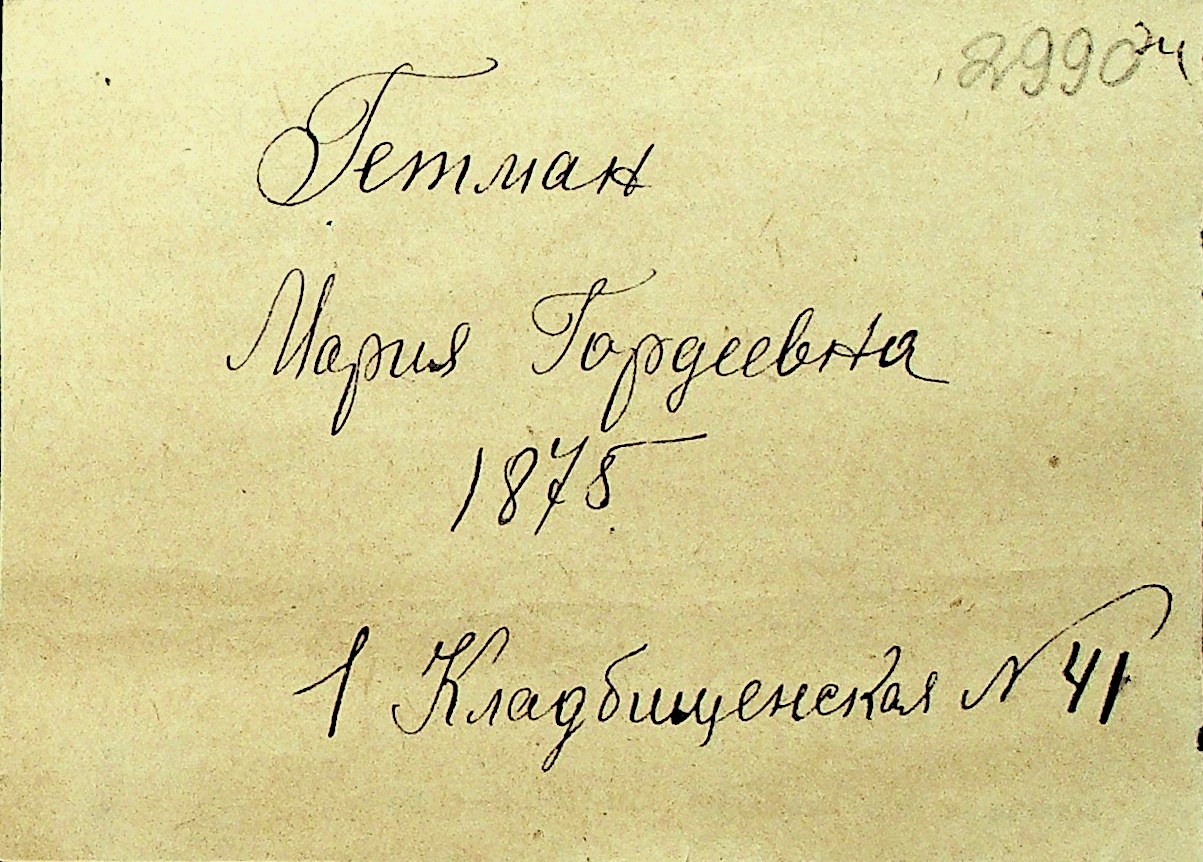 2990
Гетман
Мария Гордеевна
1875
1 Кладбищенская № 41